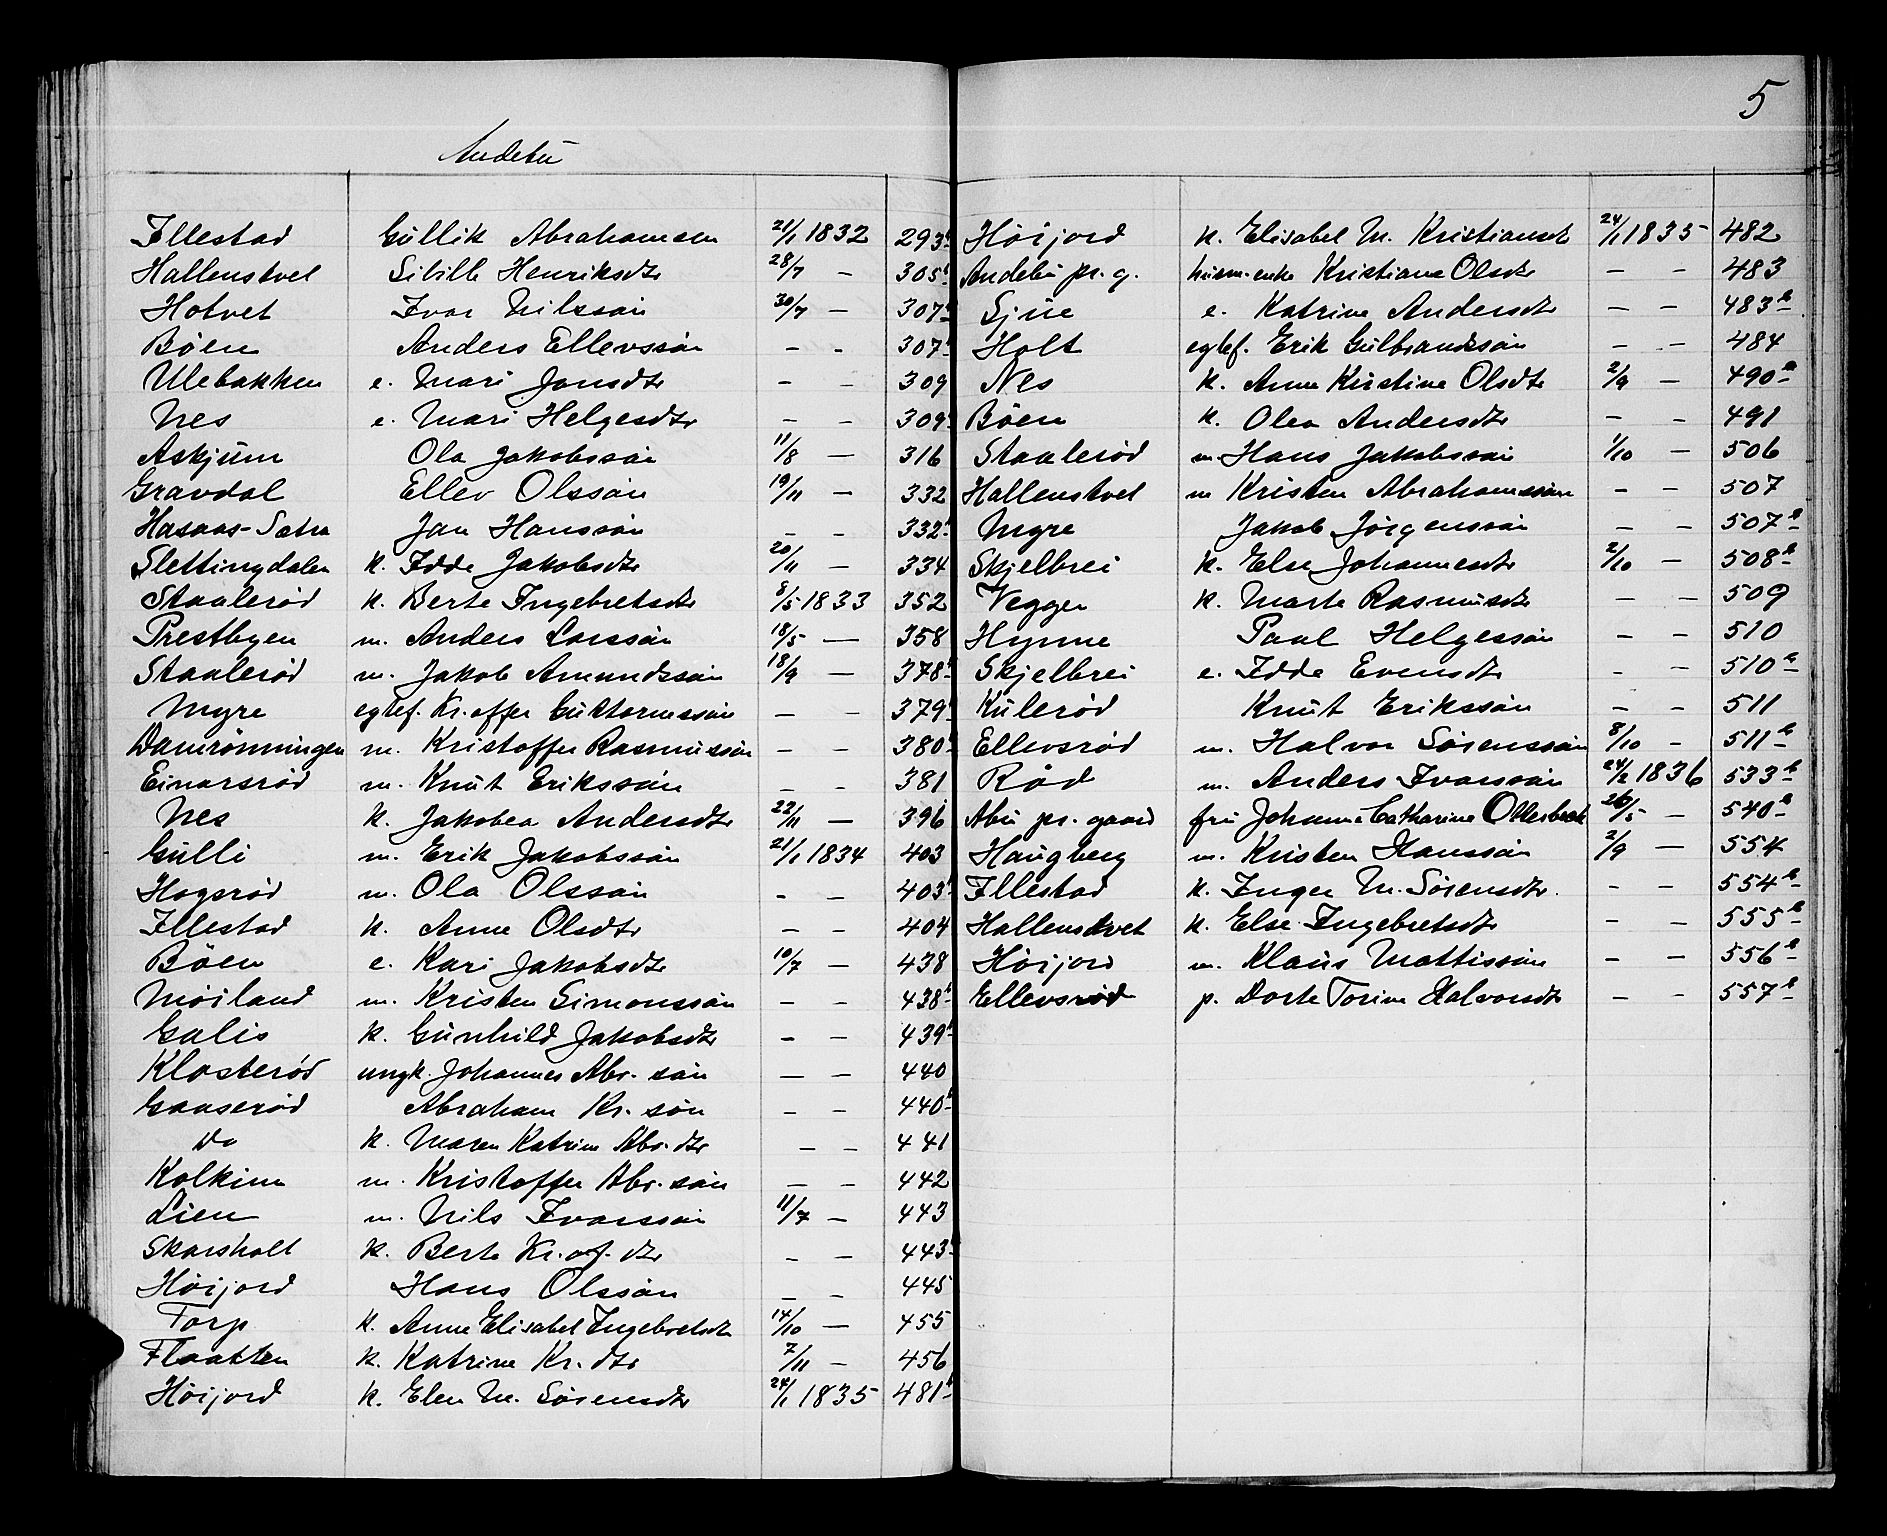 5
Andebu
Illestad Gullik Abrahamsen 21/1 1832 293b
Hallenstvet Sibille Henriksdtr 28/7 — 305b
Hotvet Ivar Nilssøn 30/7 — 307b
Bøen Anders Ellevssøn - - 307b
Ulebakken e. Mari Jonsdtr - - 309
Nes e. Mari Helgesdtr - - 309b
Askjum Ola Jakobssøn 11/8 — 316
Gravdal Ellev Olssøn 19/11 — 332
Hasaas-Sætra Jan Hanssøn - - 332b
Slettingdalen k. Idde Jakobsdtr 20/11 — 334
Staalerød k. Berte Ingebretsdtr 8/5 1833 352
Prestbyen m. Anders Larssøn 18/5 — 358
Staalerød m. Jakob Amundssøn 18/9 — 378b
Myre egtef. Kr.offer Guttormssøn — — 379b
Damrønningen m. Kristoffer Rasmussøn - - 380b
Einarsrød m. Knut Erikssøn - - 381
Nes k. Jakobea Andersdtr 22/11 — 396
Gulli m. Erik Jakobssøn 21/1 1834 403
Hogsrød m. Ola Olssøn - - 403b
Illestad k. Anne Olsdtr - - 404
Bøen e. Kari Jakobsdtr 10/7 — 438
Møiland m. Kristen Simonssøn - - 438b
Galis k. Gunhild Jakobsdtr - - 439b
Klosterød ungk. Johannes Abr. søn — — 440
Gaaserød Abraham Kr. søn - - 440b
Do k. Maren Katrine Abr.dtr - - 441
Kolkinn m. Kristoffer Abr. søn — - 442
Lien m. Nils Ivarssøn 11/7 — 443
Skarsholt k. Berte Kr.of. dtr - - 443b
Høijord Hans Olssøn - - 445
Torp k. Anne Elisabet Ingebretsdtr 14/10 — 455
Flaatten k. Katrine Kr. dtr 7/11 - 456
Høijord k. Elen M. Sørensdtr 24/1 1835 481b
Høijord k. Elisabet M. Kristiansdt 24/1 1835 482
Andebu pr. g. husm.enke Kristiane Olsdtr — — 483
Sjue e. Katrine Andersdtr - - 483b
Holt egtef. Erik Gulbrandssøn - - 484
Nes k. Anne Kirstine Olsdtr 2/9 — 490b
Bøen k. Olea Andersdtr - - 491
Staalerød m. Hans Jakobssøn 1/10 — 506
Hallenstvet m Kristen Abrahamssøn - - 507
Myre Jakob Jørgenssøn - - 507b
Skjelbrei k. Else Johannesdtr 2/10 — 508b
Vegger k. Marte Rasmusdtr — - 509
Hynne Paal Helgessøn - - 510
Skjelbrei e. Idde Evensdtr - - 510b
Kulerød Knut Erikssøn - - 511
Ellevsrød m. Halvor Sørenssøn 8/10 - 511b
Rød m. Anders Ivarssøn 24/2 1836 533b
Abu pr. gaard fru Johanne Catharine Otterbech 26/5 — 540b
Haugberg m. Kristen Hanssøn 2/9 — 554
Illestad k. Inger M. Sørensdtr. - - 554b
Hallenstvet k. Else Ingebretsdtr - - 555b
Høijord m. Klaus Mattissøn - - 556b
Ellevsrød p. Dorte Torine Halvorsdtr - - 557b